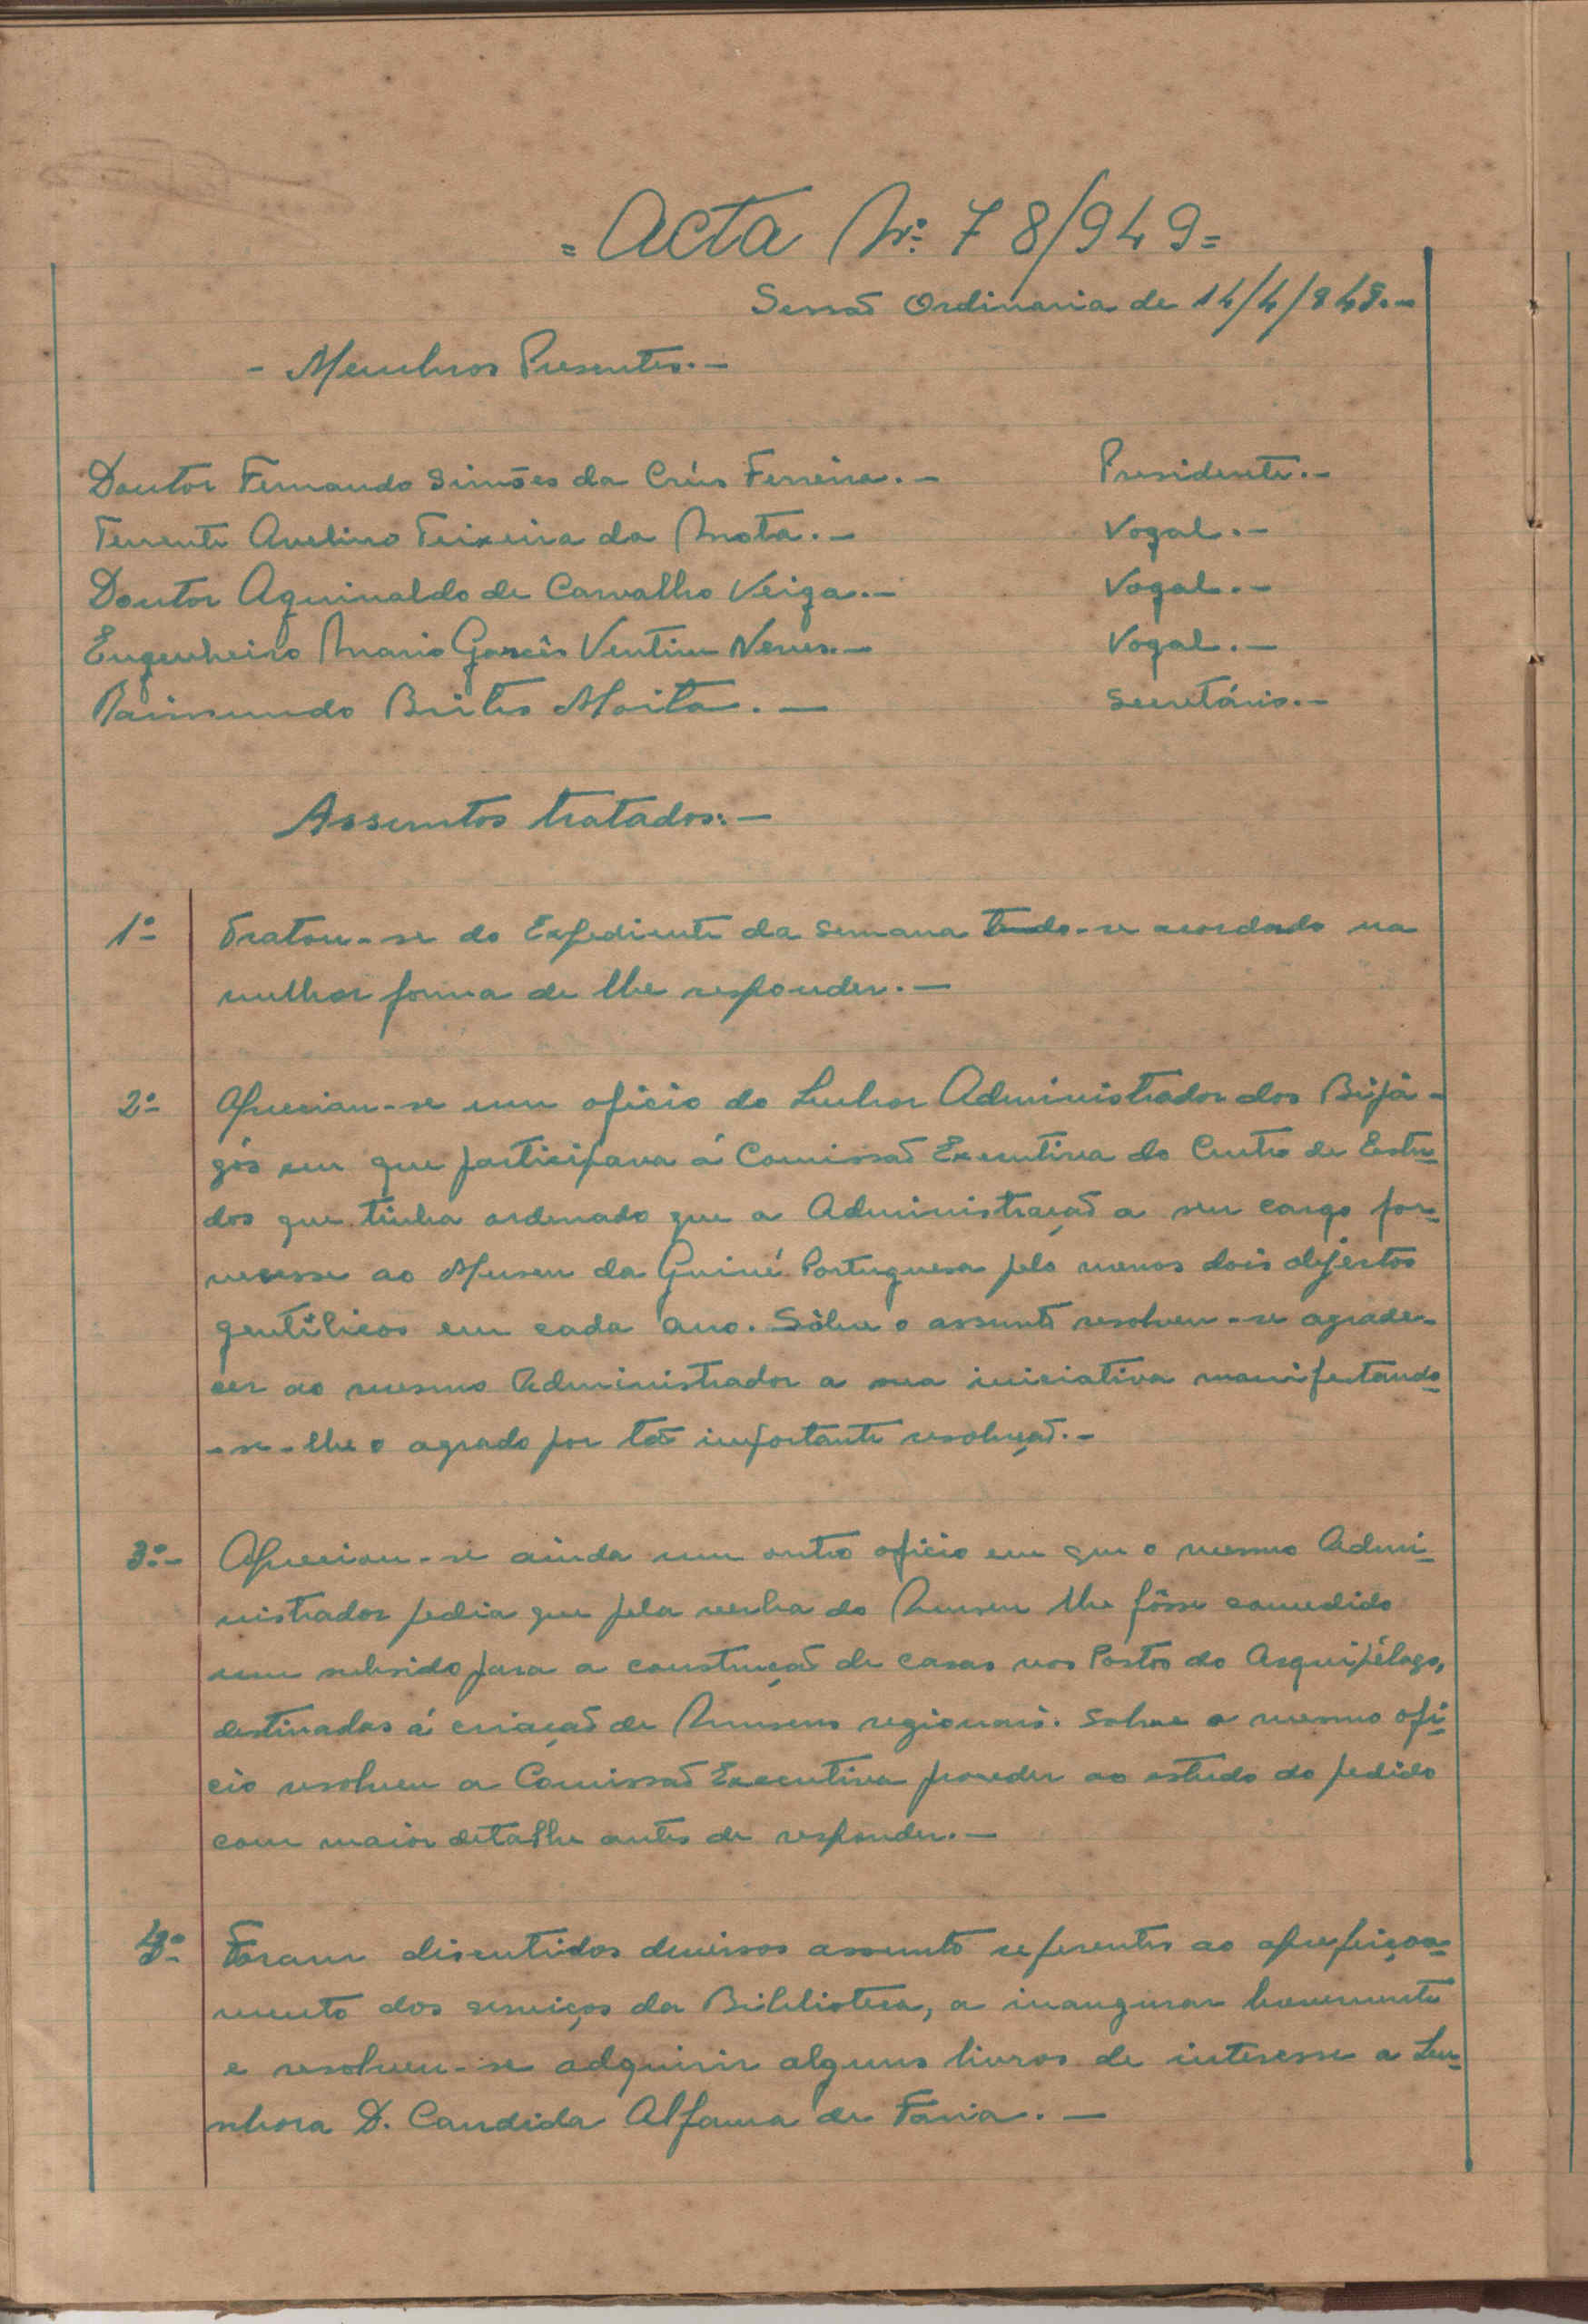 = Acta Nº 78/949 =
Sessão Ordinaria de 14/4/949.—
- Membros Presentes.—
Doutor Fernando Simões da Crús Ferreira.— Presidente.—
Tenente Avelino Teixeira da Mota.— Vogal.—
Doutor Aguinaldo de Carvalho Veiga.— Vogal.—
Engenheiro Mario Garcês Ventim Neves.— Vogal.—
Raimundo Brites Moita.— Secretário.—
Assuntos tratados:—
1º Tratou-se do Expediente da semana tendo-se acordado na
melhor forma de lhe responder.—
2º Apreciou-se um oficio do Senhor Administrador dos Bijá-
gós em que participava á Comissão Executiva do Centro de Estu-
dos que tinha ordenado que a Administração a seu cargo for-
necesse ao Museu da Guiné Portuguesa pelo menos dois objectos
gentílicos em cada ano. Sôbre o assunto resolveu-se agrade-
cer ao mesmo Administrador a sua iniciativa manifestando-
-se-lhe o agrado por tão importante resolução.—
3º- Apreciou-se ainda um outro oficio em que o mesmo Admi-
nistrador pedia que pela verba do Museu lhe fôsse concedido
um subsido para a construção de casas nos Postos do Arquipélago,
destinadas á criação de Museus regionais. Sobre o mesmo ofi-
cio resolveu a Comissão Executiva proceder ao estudo do pedido
com maior detalhe antes de responder.—
4º- Foram discutidos diversos assunto referentes ao aprefeiçoa-
mento dos serviços da Biblioteca, a inaugurar brevemente
e resolveu-se adquirir alguns livros de interesse a Se-
nhora D. Candida Alfama de Faria.—